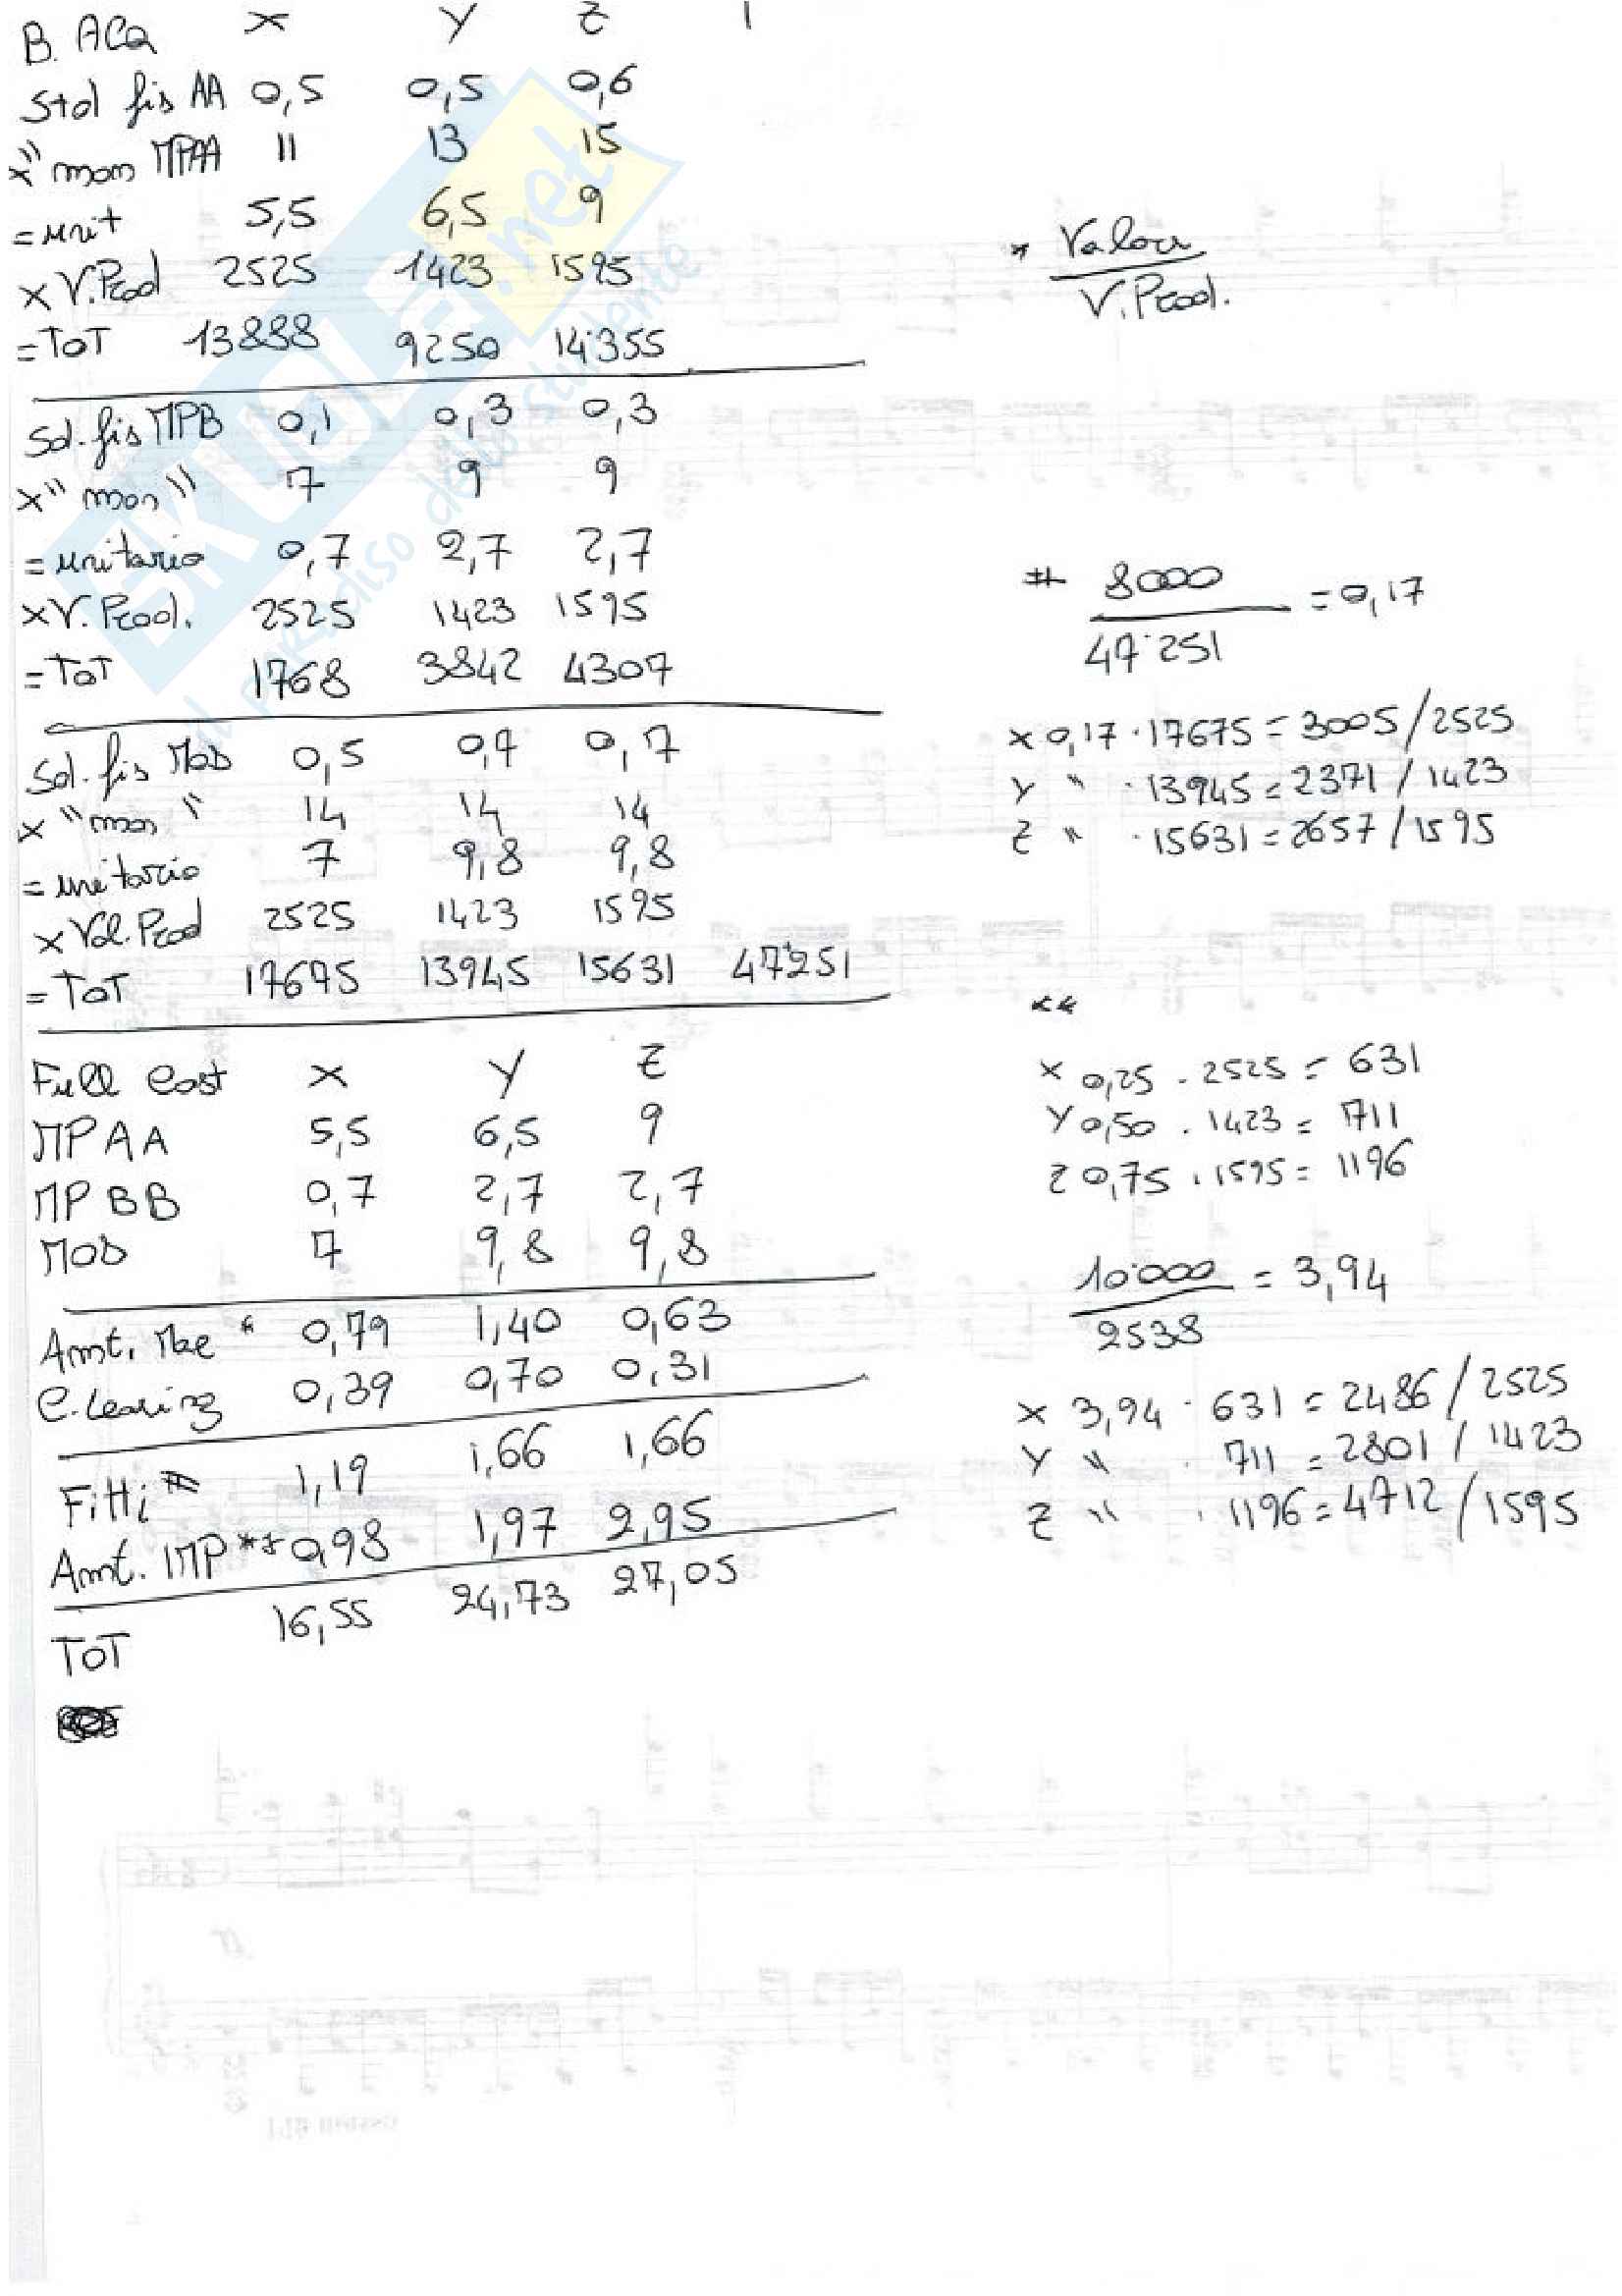 B. ACQ X Y Z
Std fis AA 0,5 0,5 0,6
x" mon MPAA 11 13 15
= unit 5,5 6,5 9
x V.Prod 2525 1423 1595
= TOT 13888 9250 14'355
Sd. fis MPB 0,1 0,3 0,3
x" mon " 7 9 9
= unitario 0,7 2,7 2,7
x V. Prod. 2525 1423 1595
= TOT 1768 3842 4307
Sd. fis MOD 0,5 0,7 0,7
x " mon " 14 14 14
= unitario 7 9,8 9,8
x Vol. Prod 2525 1423 1595
= TOT 17675 13945 15631 47251
Full Cost X Y Z
MPAA 5,5 6,5 9
MP BB 0,7 2,7 2,7
MOD 7 9,8 9,8
Amt. Mke * 0,79 1,40 0,63
C. Leasing 0,39 0,70 0,31
Fitti # 1,19 1,66 1,66
Amt. IMP ** 0,98 1,97 2,95
TOT 16,55 24,73 27,05
* Valore
V. Prod.
# 8000 = 0,17
47'251
x 0,17 . 17675 = 3005/2525
Y " . 13945 = 2371 / 1423
Z " . 15631 = 2657 / 1595
**
X 0,25 . 2525 = 631
Y 0,50 . 1423 = 711
Z 0,75 . 1595 = 1196
10'000 = 3,94
2538
X 3,94 . 631 = 2486 / 2525
Y " . 711 = 2801 / 1423
Z " . 1196 = 4712 / 1595
SKUOLA.net
il paradiso dello studente